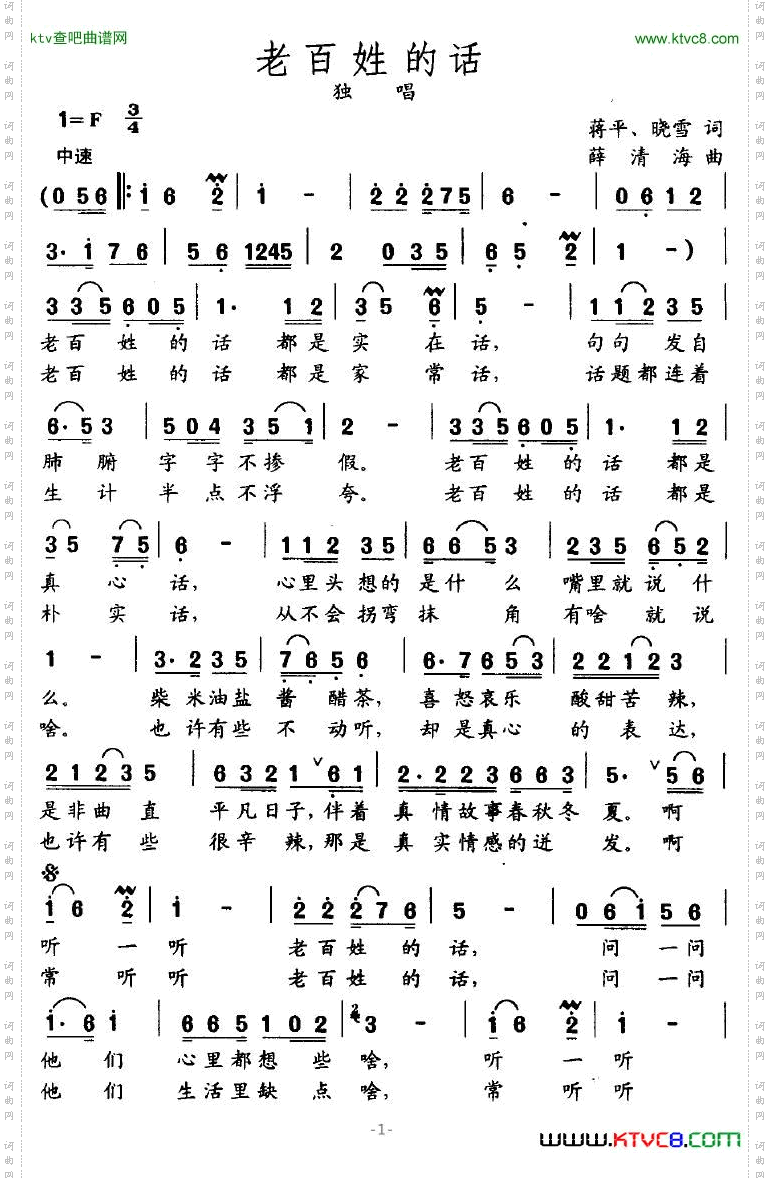 ktv查吧曲谱网
www.ktvc8.com
老百姓的话
独 唱
1=F 3/4
蒋平、晓雪 词
中速
薛清海 曲
(0 5 6 |: 1 6 2 | 1 - | 2 2 2 2 7 5 | 6 - | 0 6 1 2 |
3· 1 7 6 | 5 6 1245 | 2 0 3 5 | 6 5 2 | 1 - ) |
3 3 5 6 0 5 | 1· 1 2 | 3 5 6 | 5 - | 1 1 2 3 5 |
老百姓的话都是实在话，句句发自
老百姓的话都是家常话，话题都连着
6· 5 3 | 5 0 4 3 5 1 | 2 - | 3 3 5 6 0 5 | 1· 1 2 |
肺腑字字不掺假。老百姓的话都是
生计半点不浮夸。老百姓的话都是
3 5 7 5 | 6 - | 1 1 2 3 5 | 6 6 5 3 | 2 3 5 6 5 2 |
真心话，心里头想的是什么嘴里就说什
朴实话，从不会拐弯抹角有啥就说
1 - | 3· 2 3 5 | 7 6 5 6 | 6· 7 6 5 3 | 2 2 1 2 3 |
么。柴米油盐酱醋茶，喜怒哀乐酸甜苦辣，
啥。也许有些不动听，却是真心的表达，
2 1 2 3 5 | 6 3 2 1 ∨ 6 1 | 2· 2 2 3 6 6 3 | 5· ∨ 5 6 |
是非曲直平凡日子，伴着真情故事春秋冬夏。啊
也许有些很辛辣，那是真实情感的迸发。啊
1 6 2 | 1 - | 2 2 2 7 6 | 5 - | 0 6 1 5 6 |
听一听老百姓的话，问一问
常听听老百姓的话，问一问
1· 6 1 | 6 6 5 1 0 2 | 2 3 - | 1 6 2 | 1 - |
他们心里都想些啥，听一听
他们生活里缺点啥，常听听
-1-
WWW.KTVC8.COM
词曲网